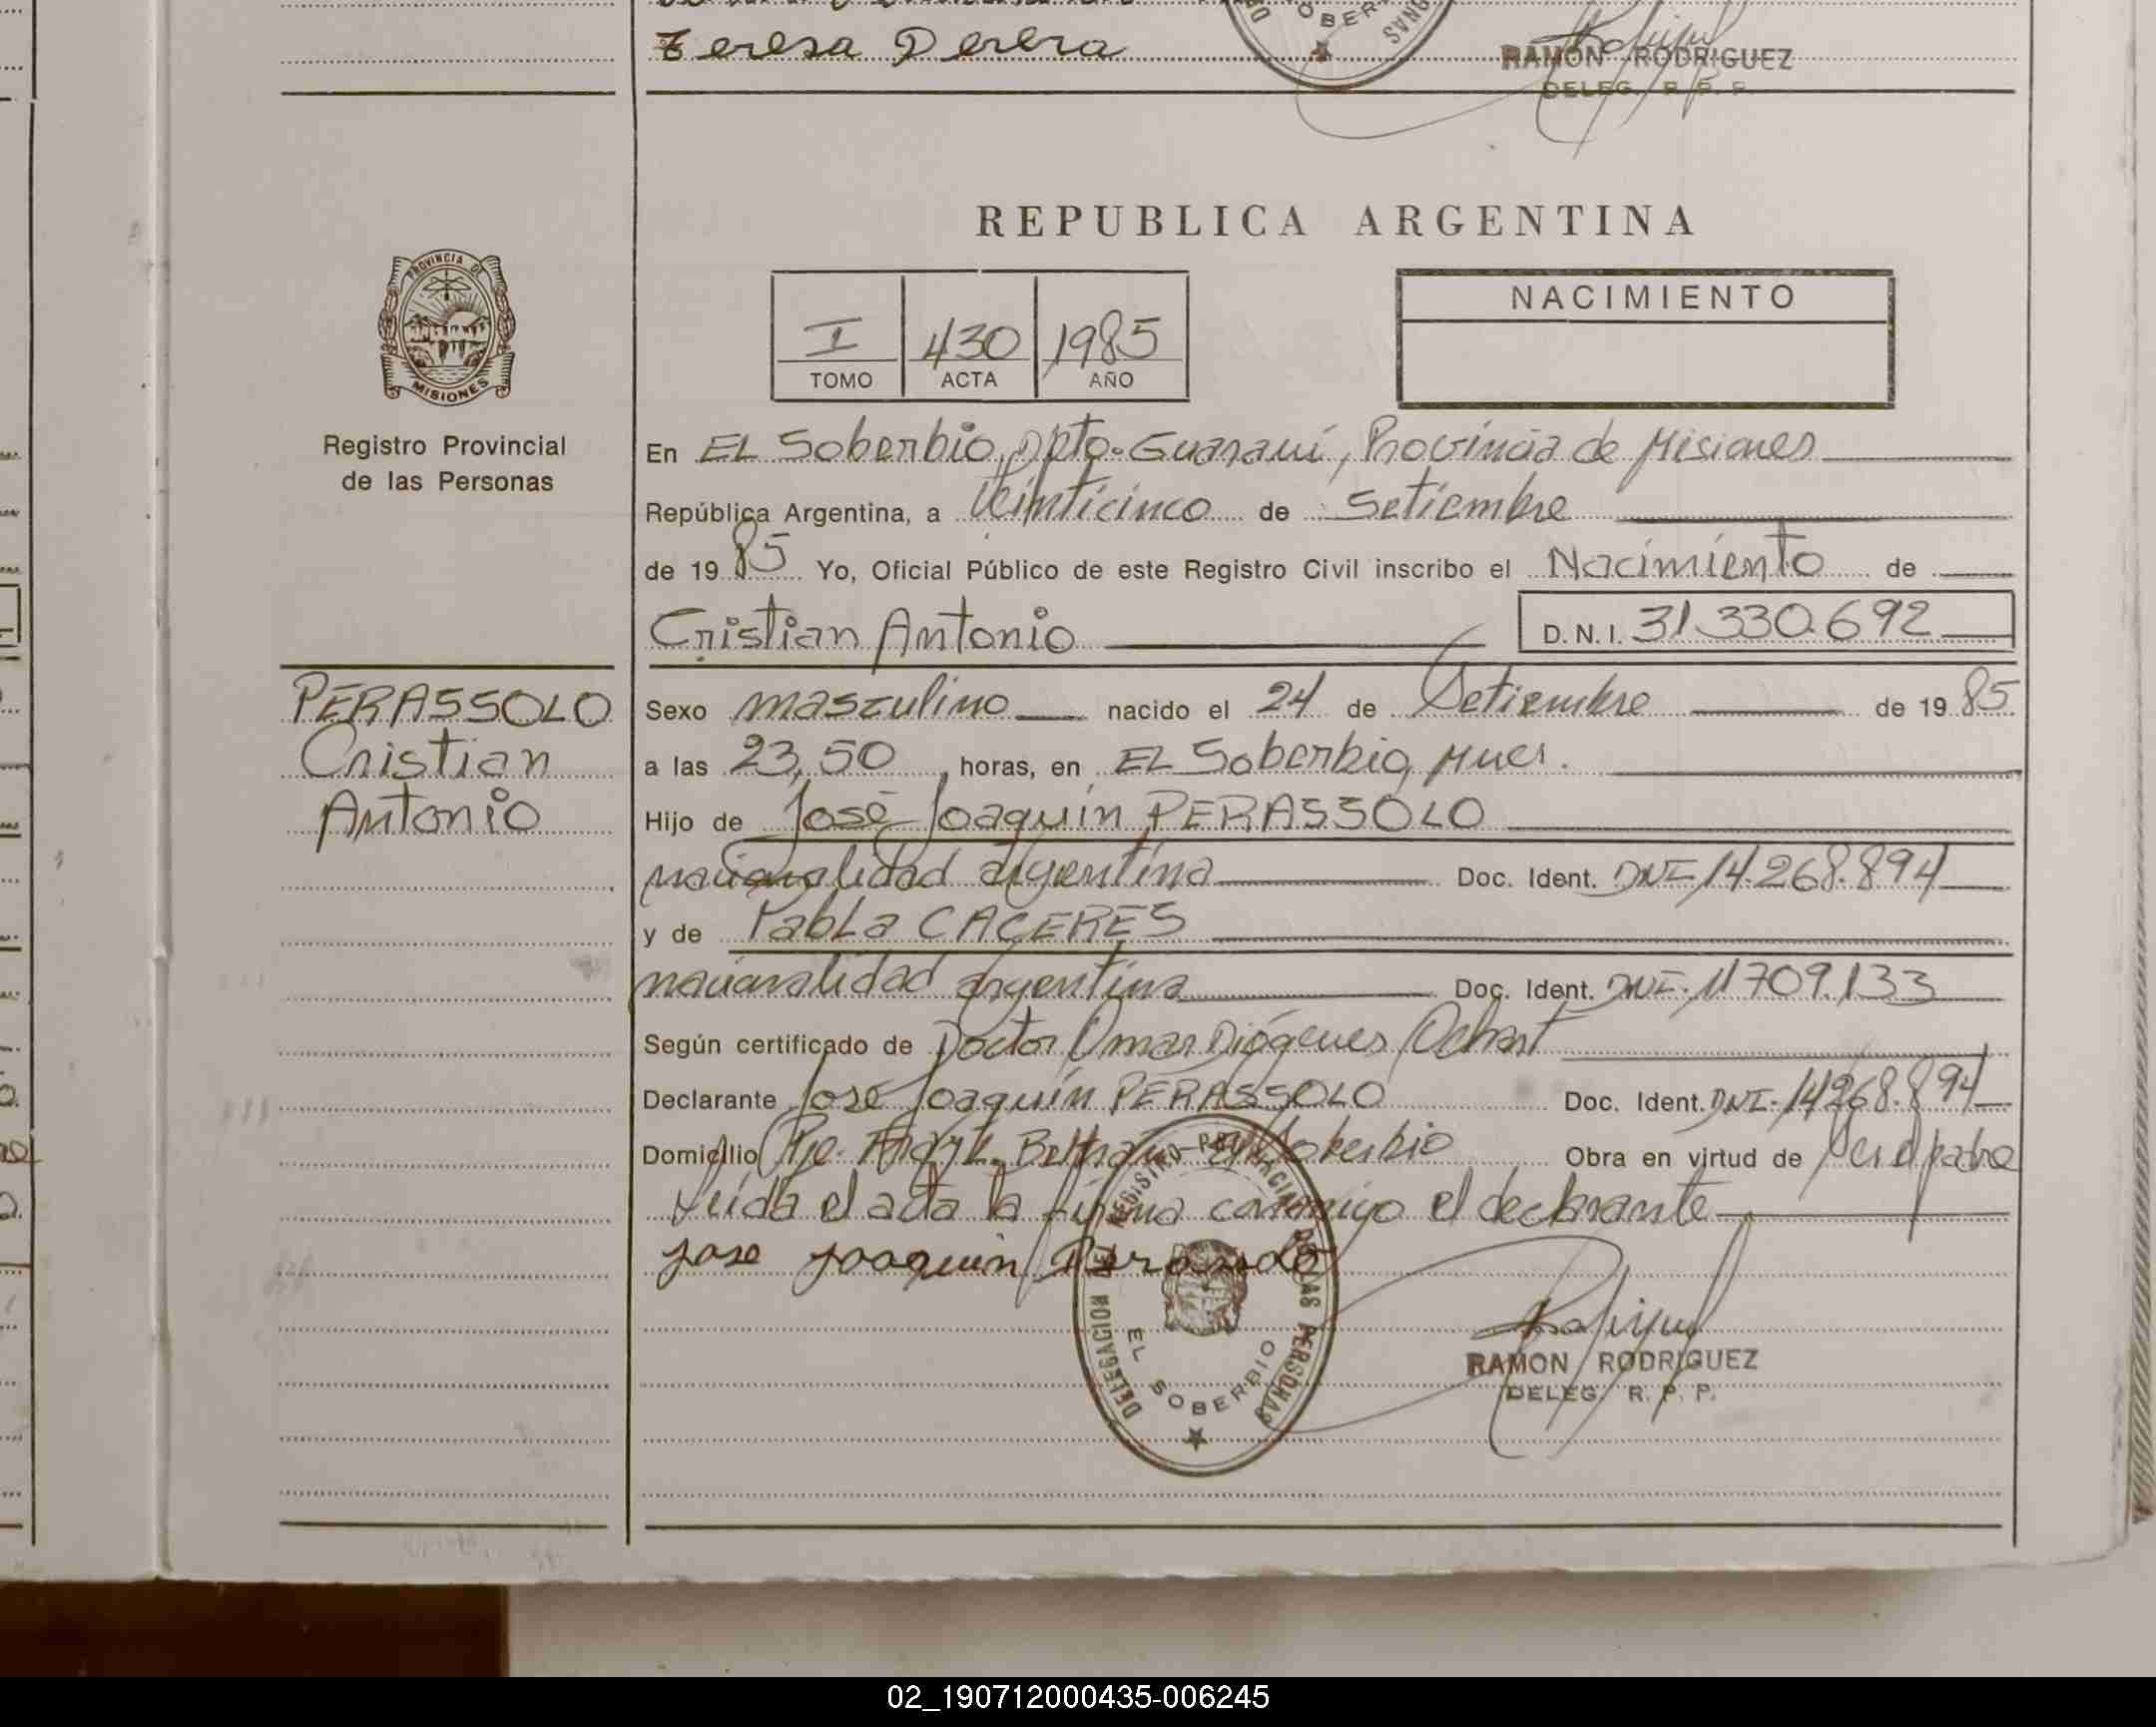 Teresa Perera
RAMON RODRIGUEZ
DELEG. R. P. P.
REPUBLICA ARGENTINA
PROVINCIA DE
MISIONES
Registro Provincial
de las Personas
I 430 1985
TOMO ACTA AÑO
NACIMIENTO
En EL Soberbio, Dpto. Guaraní, Provincia de Misiones
República Argentina, a Veinticinco de Setiembre
de 19 85 Yo, Oficial Público de este Registro Civil inscribo el Nacimiento de
Cristian Antonio D.N.I. 31.330.692
PERASSOLO
Cristian
Antonio
Sexo masculino nacido el 24 de Setiembre de 19 85
a las 23,50 horas, en EL Soberbio, Mnes.
Hijo de José Joaquín PERASSOLO
nacionalidad argentina Doc. Ident. DNI 14.268.894
y de Pabla CACERES
nacionalidad argentina Doc. Ident. DNI. 11.709.133
Según certificado de Doctor Omar Diógenes Ochart
Declarante José Joaquín PERASSOLO Doc. Ident. DNI. 14.268.894
Domicilio Beltrán El Soberbio Obra en virtud de ser el padre
Leída el acta la firma conmigo el declarante
jose joaquin Perassolo
DELEGACION DEL REGISTRO PROVINCIAL DE LAS PERSONAS
EL SOBERBIO
RAMON RODRIGUEZ
DELEG. R. P. P.
02_190712000435-006245